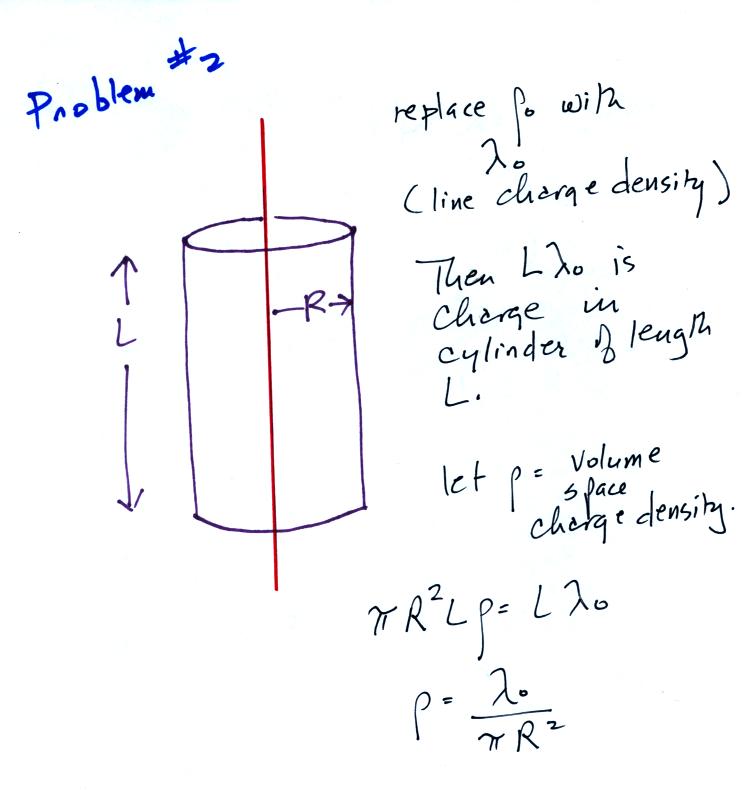 Problem #2
replace ρ₀ with
λ₀
(line charge density)
Then Lλ₀ is
charge in
cylinder of length
L.
L
R
let ρ = volume
space
charge density.
πR²Lρ = Lλ₀
ρ = λ₀
πR²